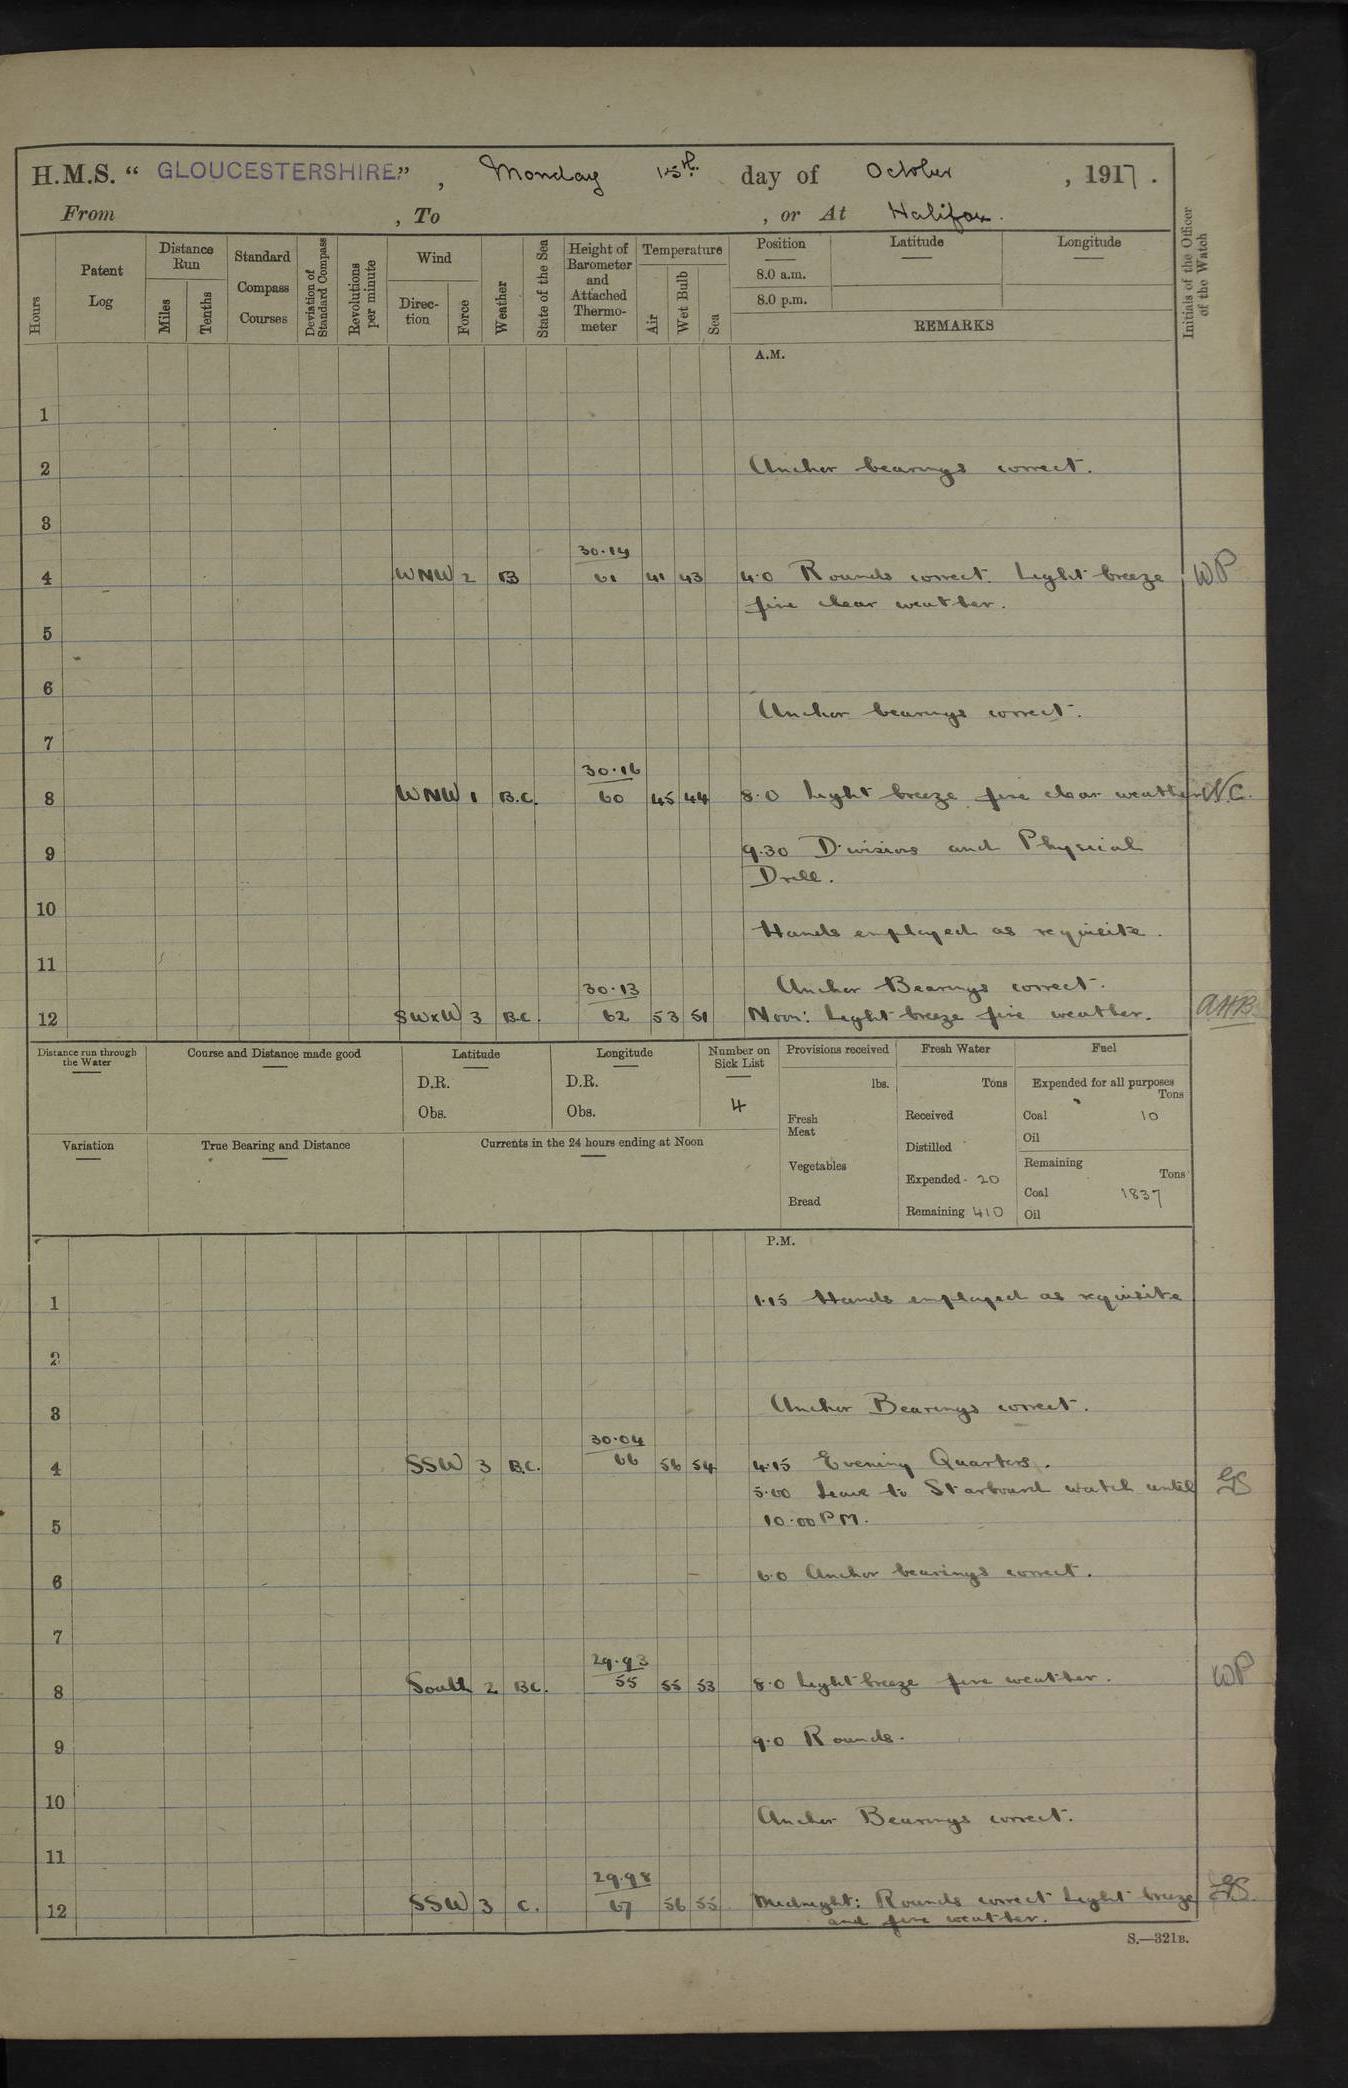 H.M.S. “ GLOUCESTERSHIRE ” , Monday 15th. day of October , 1917 .
From , To , or At Halifax .
Hours Patent Log Distance Run Miles Tenths Standard Compass Courses Deviation of Standard Compass Revolutions per minute Wind Direc-tion Force Weather State of the Sea Height of Barometer and Attached Thermo-meter Temperature Air Wet Bulb Sea Position 8.0 a.m. 8.0 p.m. Latitude Longitude REMARKS Initials of the Officer of the Watch
A.M.
1
2 Anchor bearings correct.
3
30.14
4 WNW 2 B 61 41 43 4.0 Rounds correct. Light breeze WP
fine clear weather.
5
6
Anchor bearings correct.
7
30.16
8 WNW 1 B.C. 60 45 44 8.0 Light breeze fine clear weather N.C.
9 9.30 Divisions and Physical
Drill.
10
Hands employed as requisite.
11
30.13 Anchor Bearings correct.
12 SWxW 3 B.C. 62 53 51 Noon: Light breeze fine weather. AHB
Distance run through the Water Course and Distance made good Latitude Longitude Number on Sick List Provisions received Fresh Water Fuel
D.R. D.R. lbs. Tons Expended for all purposes Tons
Obs. Obs. 4 Fresh Meat Received Coal 10
Variation True Bearing and Distance Currents in the 24 hours ending at Noon Distilled Oil
Vegetables Remaining Tons
Expended 20 Coal 1837
Bread Remaining 410 Oil
P.M.
1 1.15 Hands employed as requisite
2
3 Anchor Bearings correct.
30.04
4 SSW 3 B.C. 66 56 54 4.15 Evening Quarters.
5.00 Leave to Starboard watch until GS
5 10.00 PM.
6 6.0 Anchor bearings correct.
7
29.93
8 South 2 BC. 55 55 53 8.0 Light breeze fine weather. WP
9 9.0 Rounds.
10
Anchor Bearings correct.
11
29.98
12 SSW 3 C. 67 56 55 Midnight: Rounds correct Light breeze GS
and fine weather.
S.—321B.